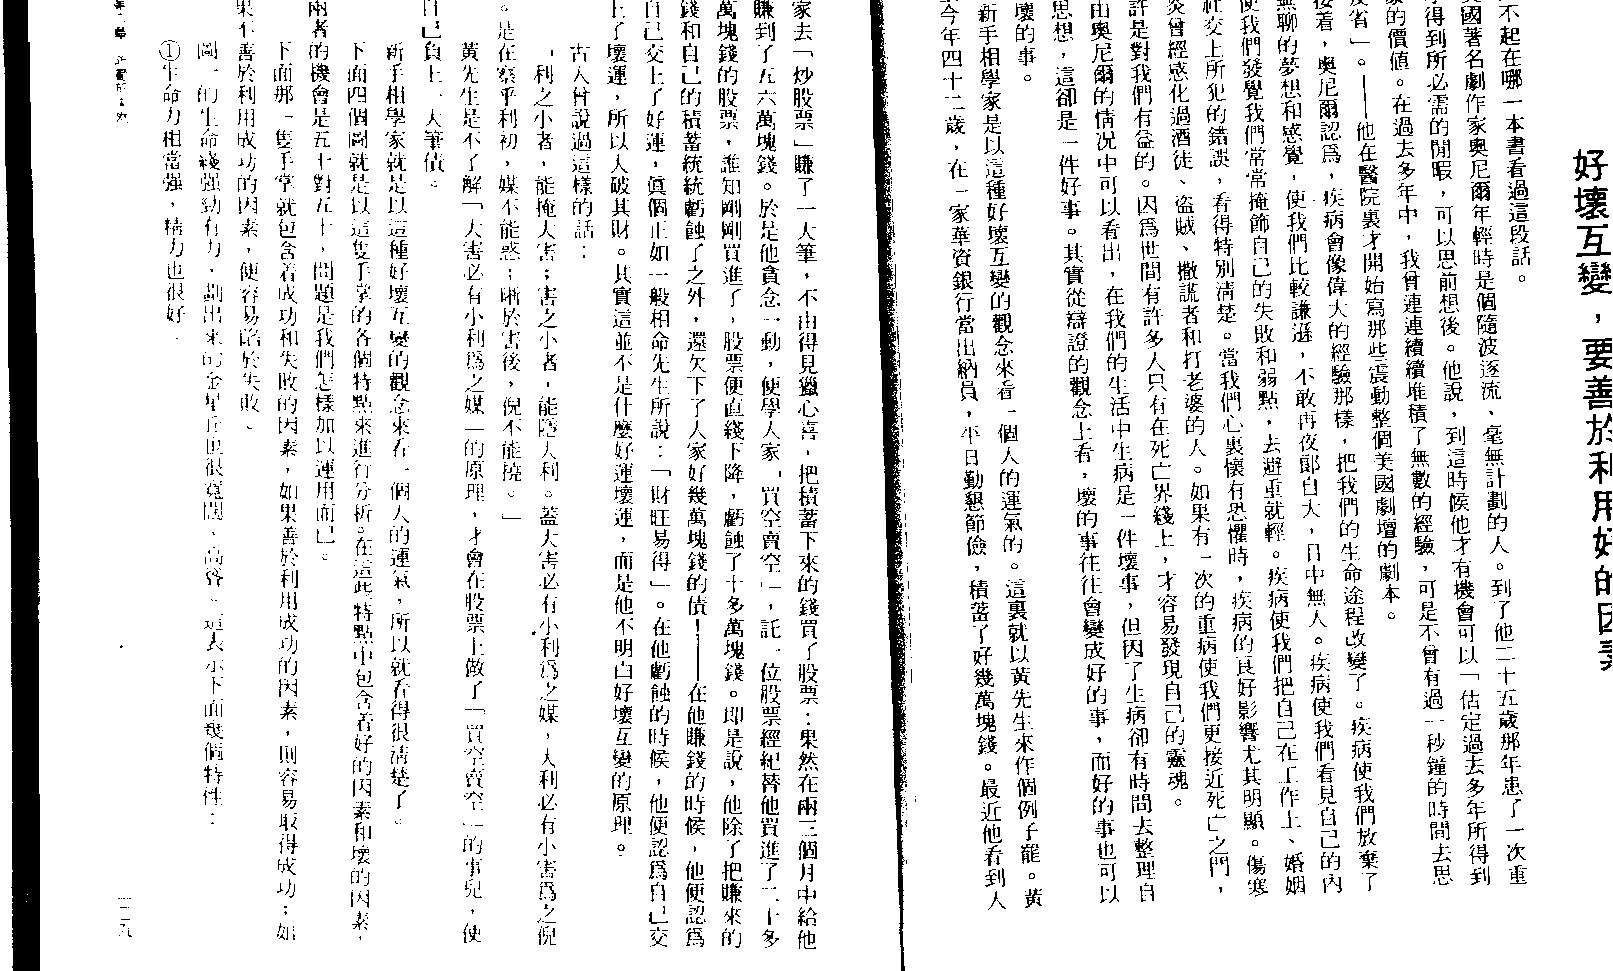 好壞互變，要善於利用好的因素
不起在哪一本書看過這段話。
美國著名劇作家奧尼爾年輕時是個隨波逐流、毫無計劃的人。到了他二十五歲那年患了一次重
得到所必需的閒暇，可以思前想後。他說，到這時候他才有機會可以「估定過去多年所得到
的價值。在過去多年中，我曾連連續續堆積了無數的經驗，可是不曾有過一秒鐘的時間去思
反省」。——他在醫院裏才開始寫那些震動整個美國劇壇的劇本。
接着，奧尼爾認爲，疾病會像偉大的經驗那樣，把我們的生命途程改變了。疾病使我們放棄了
無聊的夢想和感覺，使我們比較謙遜，不敢再夜郎自大，目中無人。疾病使我們看見自己的內
使我們發覺我們常常掩飾自己的失敗和弱點，去避重就輕。疾病使我們把自己在工作上、婚姻
社交上所犯的錯誤，看得特別清楚。當我們心裏懷有恐懼時，疾病的良好影響尤其明顯。傷寒
炎曾經感化過酒徒、盜賊、撒謊者和打老婆的人。如果有一次的重病使我們更接近死亡之門，
許是對我們有益的。因爲世間有許多人只有在死亡界綫上，才容易發現自己的靈魂。
由奧尼爾的情况中可以看出，在我們的生活中生病是一件壞事，但因了生病卻有時間去整理自
思想，這卻是一件好事。其實從辯證的觀念上看，壞的事往往會變成好的事，而好的事也可以
壞的事。
新手相學家是以這種好壞互變的觀念來看一個人的運氣的。這裏就以黃先生來作個例子罷。黃
今年四十二歲，在一家華資銀行當出納員，平日勤懇節儉，積蓄了好幾萬塊錢。最近他看到人
家去「炒股票」賺了一大筆，不由得見獵心喜，把積蓄下來的錢買了股票；果然在兩三個月中給他
賺到了五六萬塊錢。於是他貪念一動，便學人家「買空賣空」，託一位股票經紀替他買進了二十多
萬塊錢的股票，誰知剛剛買進了，股票便直綫下降，虧蝕了十多萬塊錢。即是說，他除了把賺來的
錢和自己的積蓄統統虧蝕了之外，還欠下了人家好幾萬塊錢的債！——在他賺錢的時候，他便認爲
自己交上了好運，眞個正如一般相命先生所說：「財旺易得」。在他虧蝕的時候，他便認爲自己交
上了壞運，所以大破其財。其實這並不是什麽好運壞運，而是他不明白好壞互變的原理。
古人曾說過這樣的話：
「利之小者，能掩大害；害之小者，能隱大利。蓋大害必有小利爲之媒，大利必有小害爲之倪
。是在察乎利初，媒不能惑；晰於害後，倪不能撓。」
黃先生是不了解「大害必有小利爲之媒」的原理，才會在股票上做了「買空賣空」的事兒，使
自己負上一大筆債。
新手相學家就是以這種好壞互變的觀念來看一個人的運氣，所以就看得很清楚了。
下面四個圖就是以這隻手掌的各個特點來進行分析。在這些特點中包含着好的因素和壞的因素，
兩者的機會是五十對五十，問題是我們怎樣加以運用而已。
下面那一隻手掌就包含着成功和失敗的因素，如果善於利用成功的因素，則容易取得成功；如
果不善於利用成功的因素，便容易陷於失敗、
圖一的生命綫强勁有力，劃出來的金星丘也很寬闊、高聳、這表示下面幾個特性：
①生命力相當强，精力也很好。
一一九